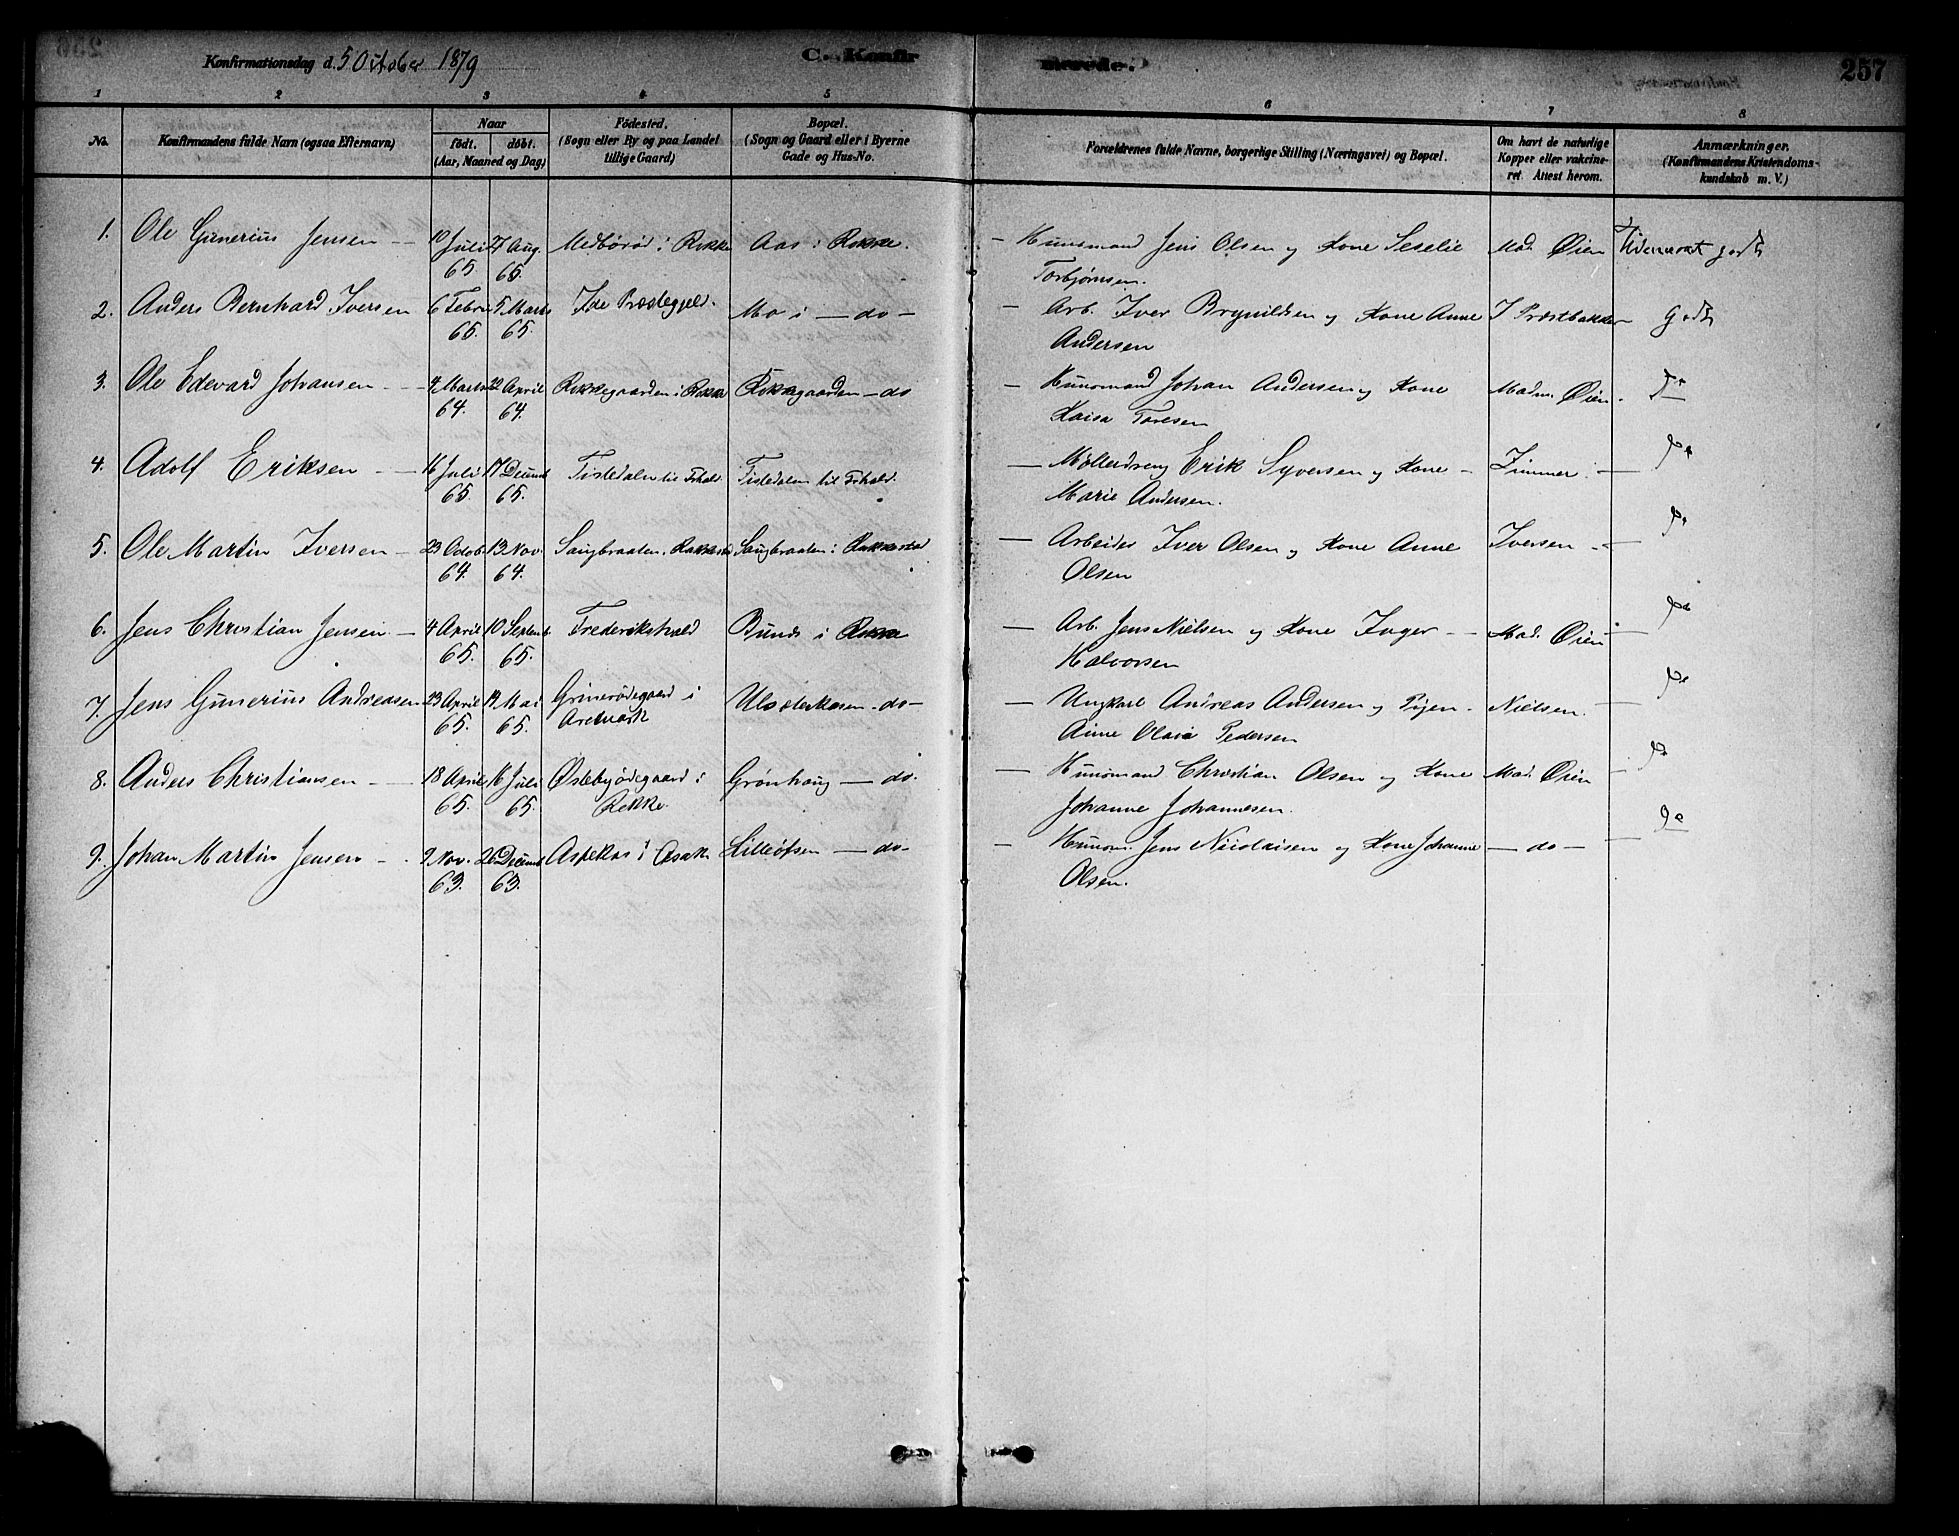 Konfirmationsdag d. 5 October 1879
C. Konfirmerede.
257
1 2 3 4 5 6 7 8
No.
Konfirmandens fulde Navn (ogsaa Efternavn)
Naar
født. døbt.
(Aar, Maaned og Dag)
Fødested.
(Sogn eller By og paa Landet
tillige Gaard)
Bopæl.
(Sogn og Gaard eller i Byerne
Gade og Hus-No.
Forældrenes fulde Navne, borgerlige Stilling (Næringsvei) og Bopæl.
Om havt de naturlige
Kopper eller vakcine-
ret. Attest herom.
Anmærkninger.
(Konfirmandens Kristendoms-
kundskab m. V.)
1. Ole Gunerius Jensen — 10 Juli 27 Aug. Medbörød i Rokke Aas i Rokke. — Huusmand Jens Olsen og Kone Seselie Mad. Øien godt
65. 65. Torbjørnsen.
2. Anders Bernhard Iversen 6 Febru 5 Marts Ide Præstegjeld. Mo i — do — — Arb. Iver Brynildsen og Kone Anne I Præstbakke — Godt
65. 65. Andersen
3. Ole Edevard Johansen — 4 Marts 22 April Rokkegaarden i Rokke Rokkegaarden — do — Huusmand Johan Andersen og Kone Madm. Øien. do
64. 64. Kaisa Toresen
4. Adolf Eriksen — 16 Juli 17 Decemb Tistedalen til Frhald Tistedalen til Frhald. — Møllerdreng Erik Syversen og Kone — Zimmer. — do
65 65. Marie Andersen.
5. Ole Martin Iversen — 23 Octob 13 Nov. Saugbraaten i Rakkestad Saugbraaten i Rakkestad — Arbeider Iver Olsen og Kone Anne Iversen — do
64. 64. Olsen
6. Jens Christian Jensen — 4 April 10 Septemb Frederikshald Bunds i Rokke — Arb. Jens Nielsen og Kone Inger — Mad. Øien — do
65. 65. Halvorsen
7. Jens Gunerius Andreasen 23 April Mai Grinerødegaard i — do — — Ungkarl Andreas Andersen og Pigen — Nielsen. — do
65. 65. Aremark Anne Olava Pedersen
8. Anders Christiansen — 18 April 16 Juli Østebyødegaard i Grønhaug — do. — Huusmand Christian Olsen og Kone Mad. Øien do
65. 65. Rokke. Johanne Johannesen.
9. Johan Martin Jensen — 9 Nov. 26 Decemb Aspekas i Asak — do — — Huusm. Jens Nicolaisen og Kone Johanne — do — do
63. 63. Olsen.